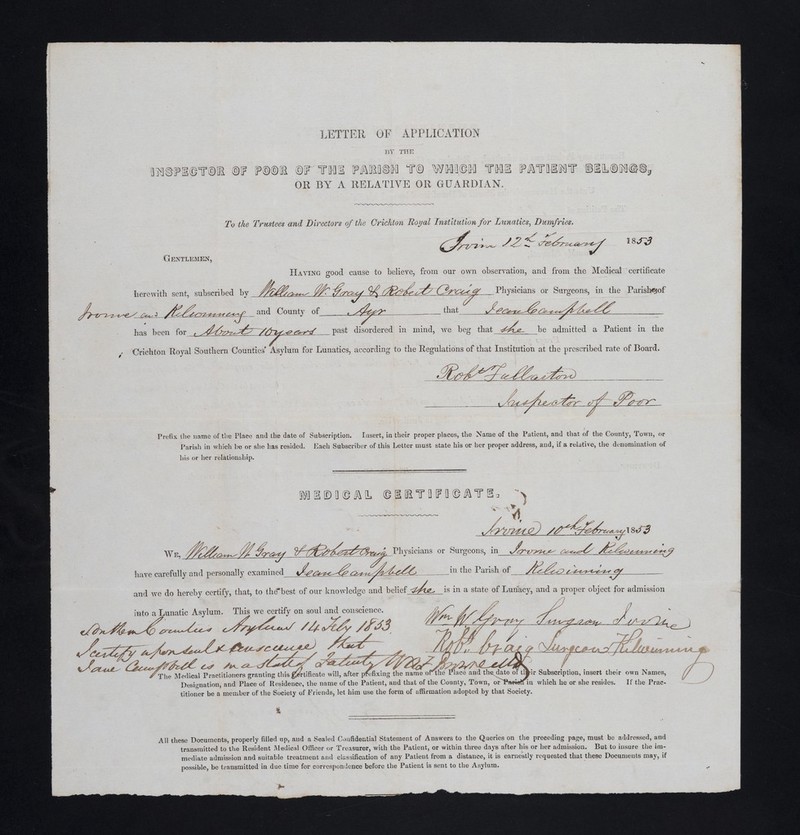 LETTER OF APPLICATION
BY THE
INSPECTOR OF POOR OF THE PARISH TO WHICH THE PATIENT BELONGS,
OR BY A RELATIVE OR GUARDIAN.
To the Trustees and Directors of the Crichton Royal Institution for Lunatics, Dumfries.
Irvine 12th February 1853
GENTLEMEN,
HAVING good cause to believe, from our own observation, and from the Medical certificate
herewith sent, subscribed by William W. Gray & Robert Craig Physicians or Surgeons, in the Parishes of
Irvine and Kilwinning and County of Ayr that Jean Campbell
has been for About 10 years past disordered in mind, we beg that she be admitted a Patient in the
Crichton Royal Southern Counties' Asylum for Lunatics, according to the Regulations of that Institution at the prescribed rate of Board.
Robt Fullarton
Inspector of Poor
Prefix the name of the Place and the date of Subscription. Insert, in their proper places, the Name of the Patient, and that of the County, Town, or
Parish in which he or she has resided. Each Subscriber of this Letter must state his or her proper address, and, if a relative, the denomination of
his or her relationship.
MEDICAL CERTIFICATE.
Irvine 10th February 1853
WE, William W. Gray & Robert Craig Physicians or Surgeons, in Irvine and Kilwinning
have carefully and personally examined Jean Campbell in the Parish of Kilwinning
and we do hereby certify, that, to the best of our knowledge and belief she is in a state of Lunacy, and a proper object for admission
into a Lunatic Asylum. This we certify on soul and conscience.
Wm W Gray Surgeon Irvine
Robt. Craig Surgeon Kilwinning
Southern Counties Asylum 14 Feby 1853
I certify upon soul & conscience that
Jane Campbell is in a state of Fatuity
The Medical Practitioners granting this Certificate will, after prefixing the name of the Place and the date of their Subscription, insert their own Names,
Designation, and Place of Residence, the name of the Patient, and that of the County, Town, or Parish in which he or she resides. If the Prac-
titioner be a member of the Society of Friends, let him use the form of affirmation adopted by that Society.
All these Documents, properly filled up, and a Sealed Confidential Statement of Answers to the Queries on the preceding page, must be addressed, and
transmitted to the Resident Medical Officer or Treasurer, with the Patient, or within three days after his or her admission. But to insure the im-
mediate admission and suitable treatment and classification of any Patient from a distance, it is earnestly requested that these Documents may, if
possible, be transmitted in due time for correspondence before the Patient is sent to the Asylum.